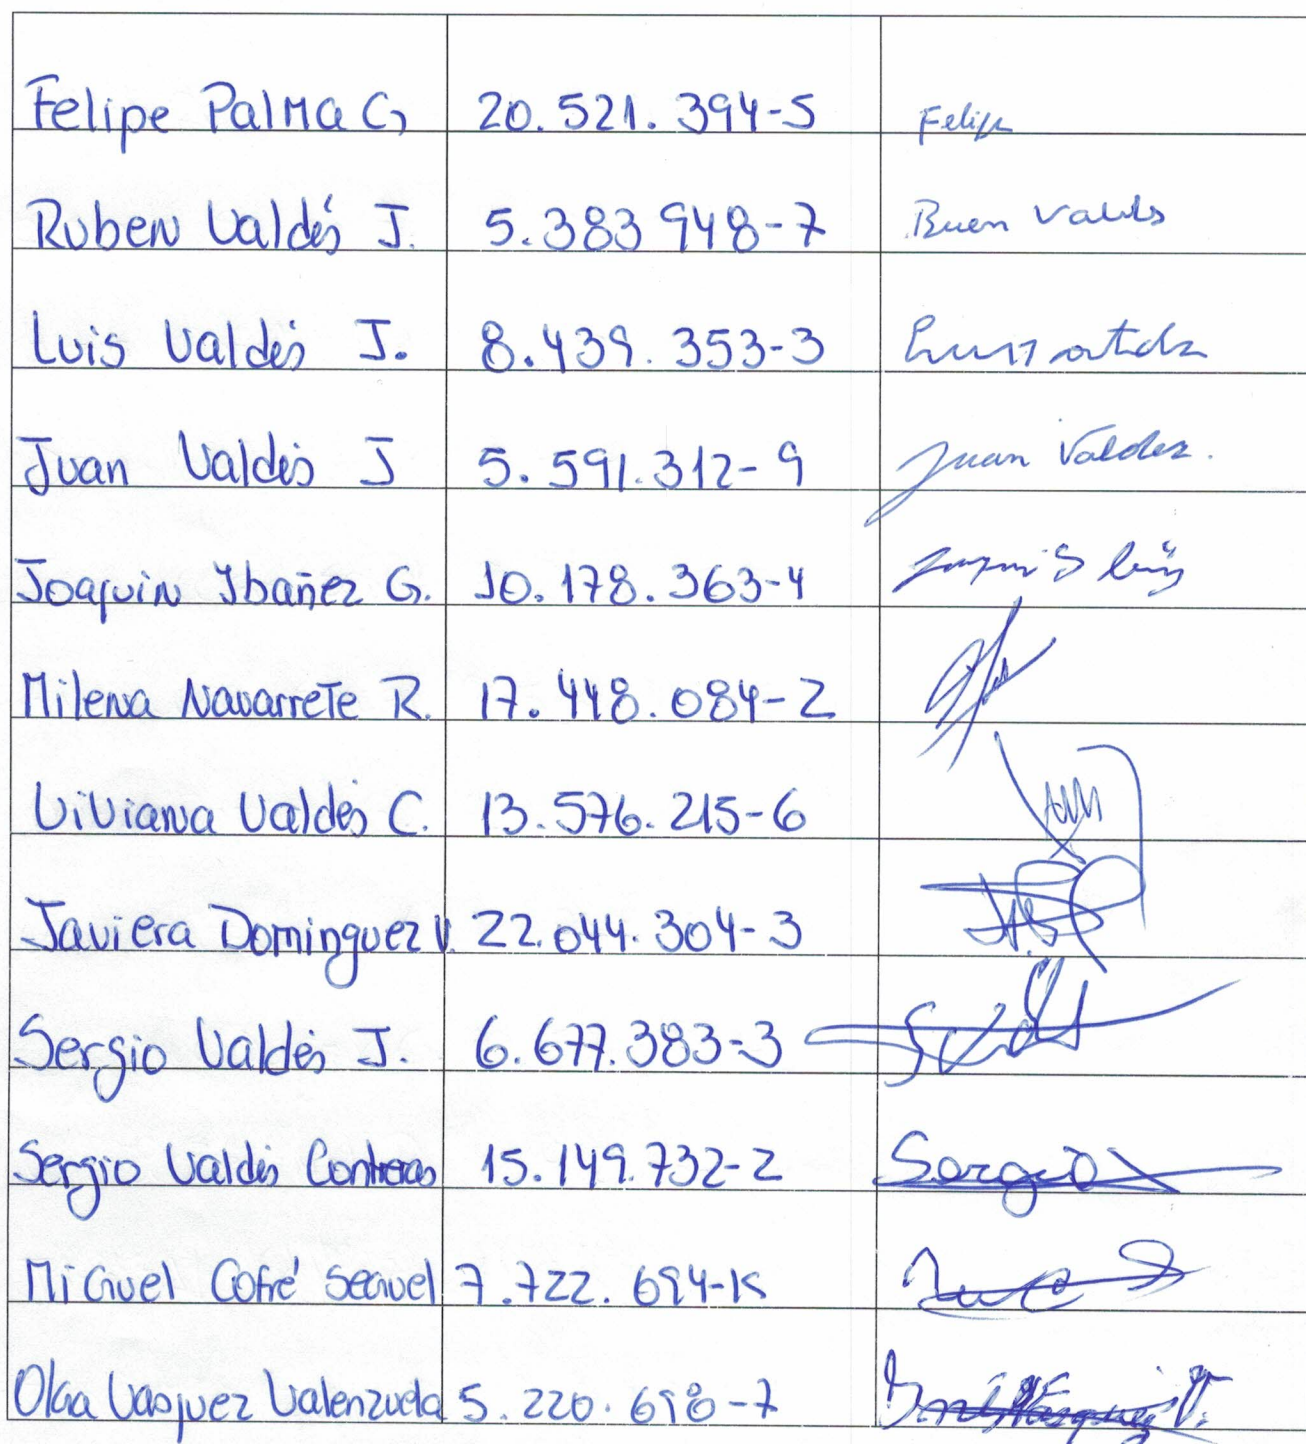 Felipe Palma G 20.521.394-5 Felipe
Ruben Valdés J. 5.383 948-7 Buen Valds
Luis Valdés J. 8.439.353-3
Juan Valdés J 5.591.312-9 Juan Valdez.
Joaquin Ybañez G. 10.178.363-4
Milena Navarrete R. 17.448.084-2
Viviana Valdés C. 13.576.215-6
Javiera Dominguez V. 22.044.304-3
Sergio Valdés J. 6.677.383-3
Sergio Valdés Contreras 15.149.732-2 Sergio
Miguel Cofré Seguel 7.722.694-K
Olga Vasquez Valenzuela 5.220.698-7